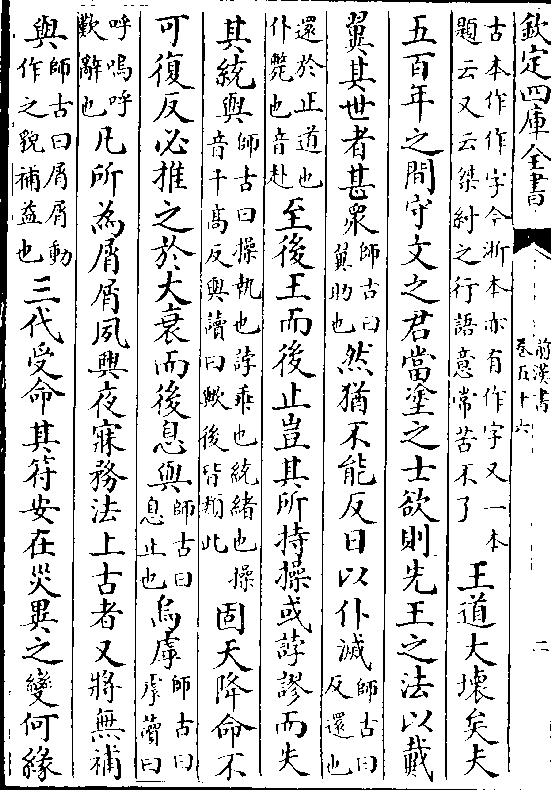 欽定四庫全書
前漢書
卷五十六
二
古本作作字今浙本亦有作字又一本
題云又云桀紂之行語意常苦不了
王道大壞矣夫
五百年之間守文之君當塗之士欲則先王之法以戴
翼其世者甚衆
師古曰
翼助也
然猶不能反日以仆滅
師古曰
反還也
還於正道也
仆斃也音赴
至後王而後止豈其所持操或誖謬而失
其統與
師古曰操執也誖乖也統緒也操
音千高反與讀曰歟後皆類此
固天降命不
可復反必推之於大衰而後息與
師古曰
息止也
烏虖
師古曰
虖讀曰
呼嗚呼
歎辭也
凡所為屑屑夙興夜寐務法上古者又將無補
與
師古曰屑屑動
作之貌補益也
三代受命其符安在災異之變何緣